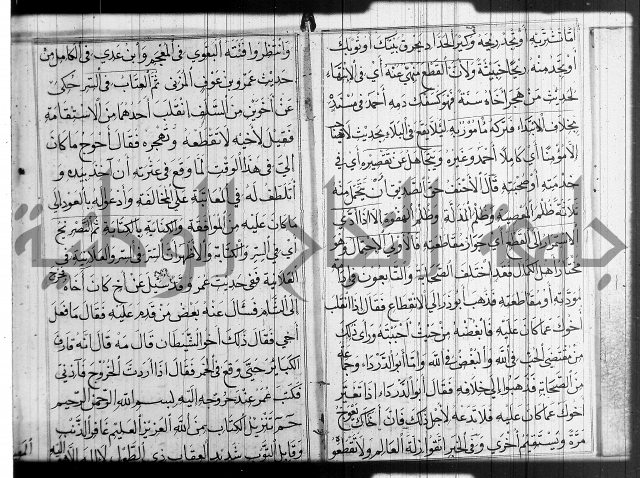 اما تشتريه او تجد ريحه وكير الحداد يحرق بيتك او ثوبك
او تجد منه ريحا خبيثة ولان القطع منهي عنه اي في الانتهاء
لحديث من هجر اخاه سنة فهو كسفك دمه احمد في مسنده
بخلاف الابتداء فتركه مأمور به لئلا يقع في البلاء بحديث لا
الا مؤمنا اي كاملا احمد وغيره ويتجاهل عن تقصيره اي في
خدمته او صحبته قال الاحنف حق الصديق ان يتحمل منه
ثلاثة ظلم الغضب وظلم الدلة وظلم الهفوة الا اذا ادى
الاستمرار الى القطع اي جواز مقاطعته فالاولى الاحتمال وهو
مختار اهل الكمال فقد اختلف الصحابة والتابعون في
مودته او مقاطعته فذهب ابو ذر الى الانقطاع فقال اذا انقلب
اخوك عما كان عليه فابغضه من حيث احببته وراى ذلك
من مقتضى الحب في الله والبغض في الله واما ابو الدرداء وجماعة
من الصحابة فذهبوا الى خلافه فقال ابو الدرداء اذا تغير
اخوك عما كان عليه فلا تدعه لاجل ذلك فان اخاك يعوج
مرة ويستقيم اخرى وفي الخبر اتقوا زلة العالم ولا تقطعوه
وانتظروا فئته البغوي في المعجم وابن عدي في الكامل من
حديث عمرو بن عوف المزني ثم العتاب في السر حكي
عن اخوين من السلف انقلب احدهما من الاستقامة
فقيل لاخيه الا تقطعه وتهجره فقال احوج ما كان
الي في هذا الوقت لما وقع في عثرته ان آخذ بيده و
اتلطف له في المعاتبة على المخالفة وادعو له بالعود الى
ما كان عليه من الموافقة والكناية بالكتابة ثم التصريح
اي في السر والكتابة والاظهر ان السر في السر والعلانية في
العلانية ففي حديث عمر وقد سئل عن اخ كان آخاه فخرج
الى الشام فسال عنه بعض من قدم عليه فقال ما فعل
اخي فقال ذلك اخو الشيطان قال مه قال انه قارف
الكبائر حتى وقع في الخمر فقال اذا اردت الخروج فآذني
فكتب عمر عند خروجه اليه بسم الله الرحمن الرحيم
حم تنزيل الكتاب من الله العزيز العليم غافر الذنب
وقابل التوب شديد العقاب ذي الطول لا اله الا هو اليه
جامعة النجاح الوطنية